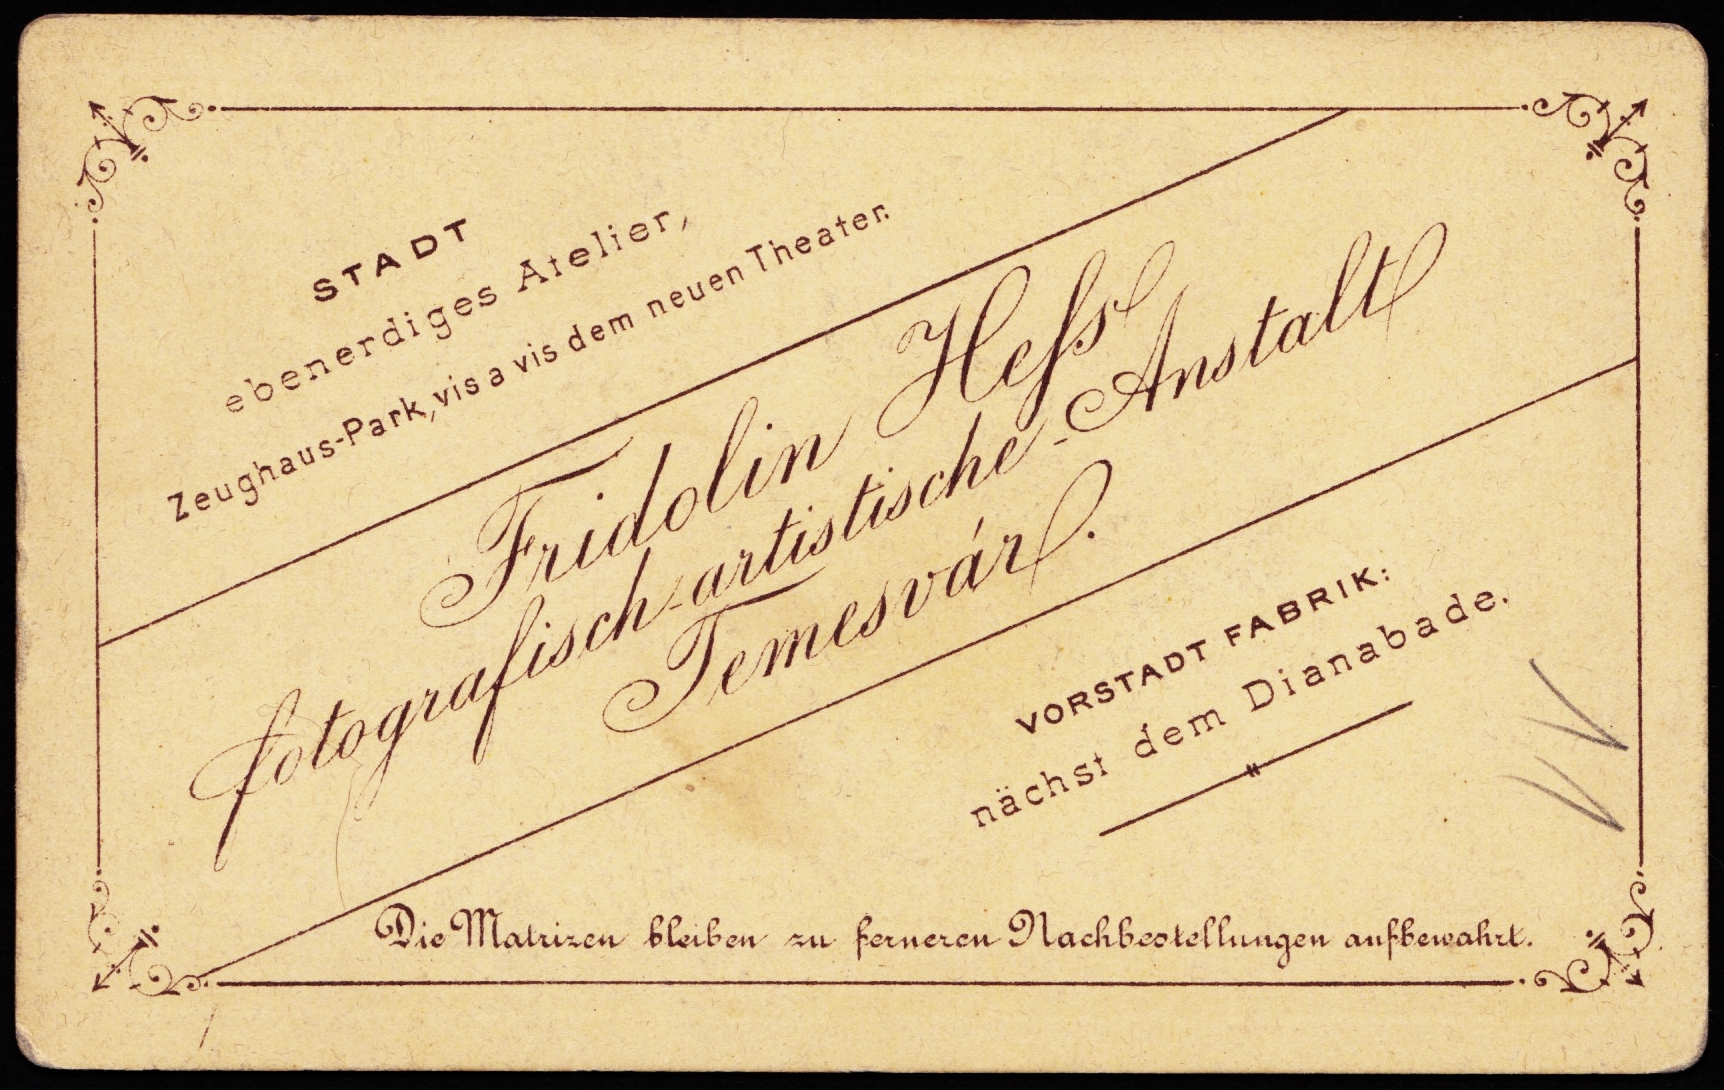 STADT
ebenerdiges Atelier,
Zeughaus-Park, vis a vis dem neuen Theater.
Fridolin Hess
fotografisch-artistische-Anstalt
Temesvár.
VORSTADT FABRIK:
nächst dem Dianabade.
Die Matrizen bleiben zu ferneren Nachbestellungen aufbewahrt.